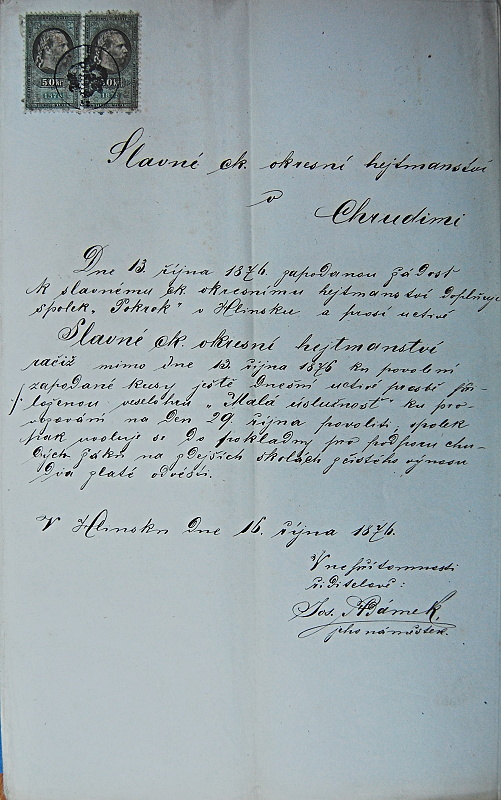 50 kr 50 kr
Slavné ck. okresní hejtmanství
v
Chrudimi
Dne 13. října 1876. zapodanou žádost
k slavnému ck. okresnímu hejtmanství doplňuje
spolek „Pokrok" v Hlinsku a prosí uctivě
Slavné ck. okresní hejtmanství
račiž mimo dne 13. října 1876 ku povolení
zapodané kusy ještě dnešní uctivé prosbě při-
loženou veselohru „Malá úslužnost" ku pro-
vozování na den 29. října povoliti, spolek
pak uvoluje se do pokladny pro podporu chu-
dých žáků na zdejších školách z čistého výnosu
dva zlaté odvésti.
V Hlinsku dne 16. října 1876.
V nepřítomnosti
ředitelově:
Jos. Adámek,
jeho náměstek.